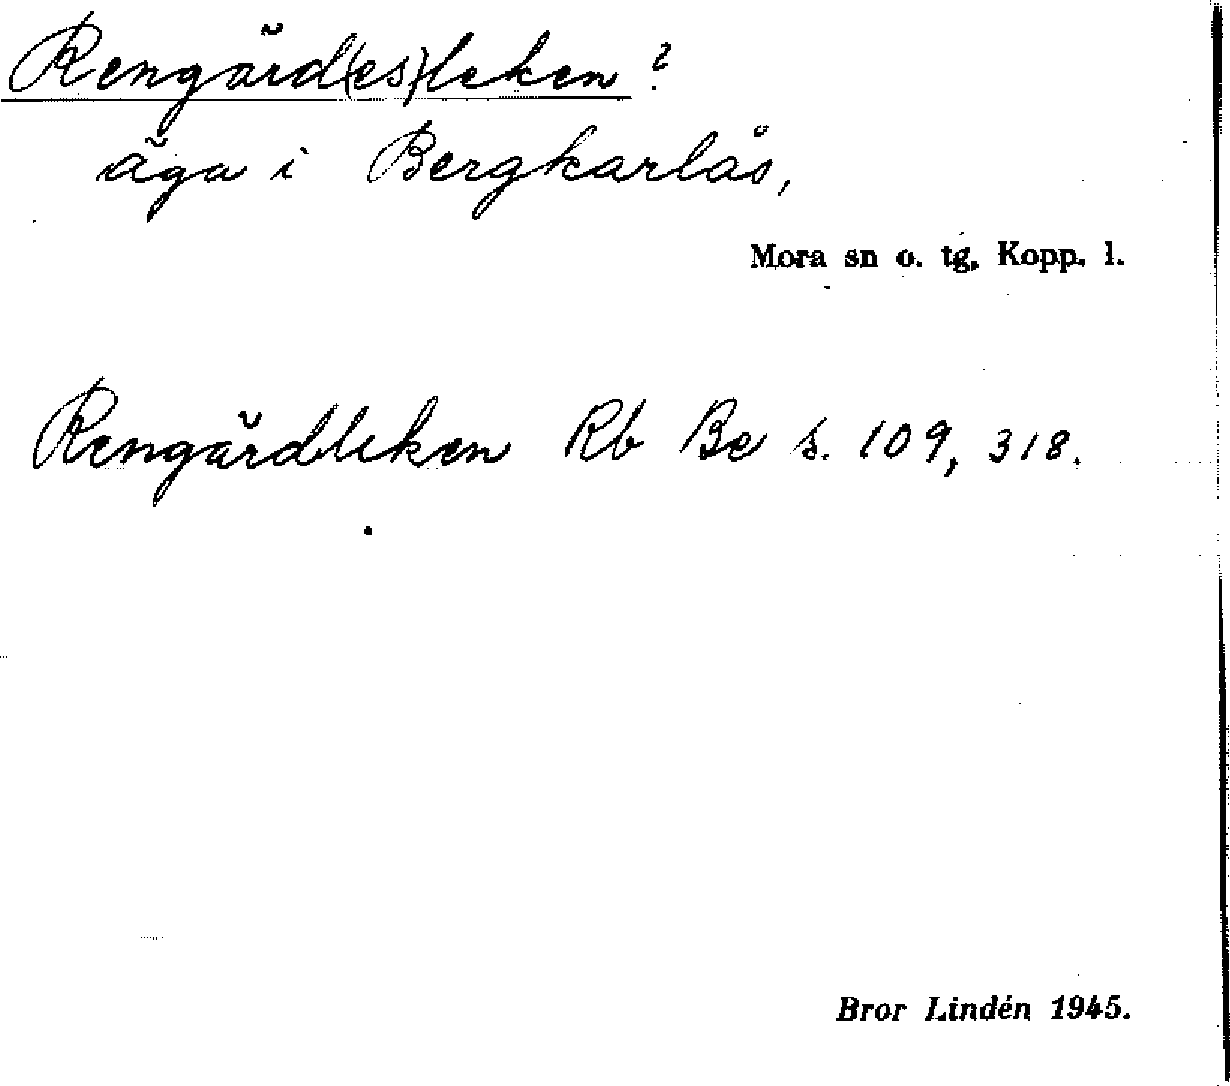 Rengärd(es)leken?
äga i Bergkarlås,
Mora sn o. tg. Kopp. l.
Rengärdleken Rb Be s. 109, 318.
Bror Lindén 1945.